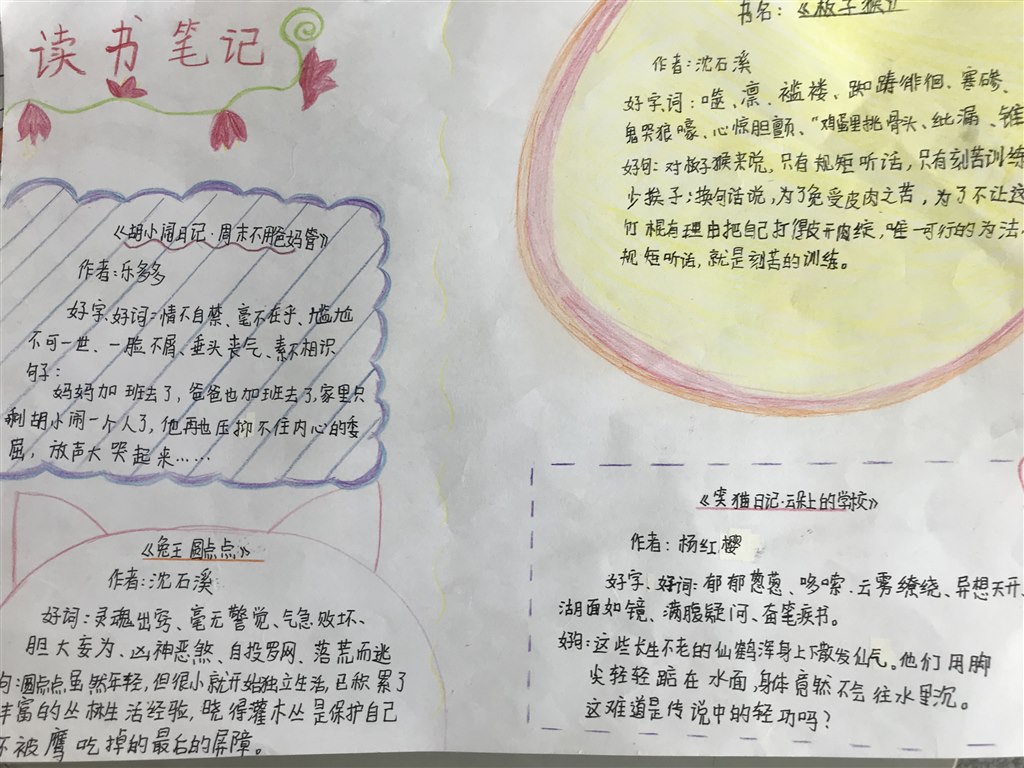 读书笔记
《胡小闹日记·周末不用爸妈管》
作者:乐多多
好字、好词:情不自禁、毫不在乎、尴尬
不可一世、一脸不屑、垂头丧气、素不相识
句子:
妈妈加班去了,爸爸也加班去了,家里只
剩胡小闹一个人了,他再也压抑不住内心的委
屈,放声大哭起来……
《兔王圆点点》
作者:沈石溪
好词:灵魂出窍、毫无警觉、气急败坏、
胆大妄为、凶神恶煞、自投罗网、落荒而逃
句:圆点点虽然年轻,但很小就开始独立生活,已积累了
丰富的丛林生活经验,晓得灌木丛是保护自己
不被鹰吃掉的最后的屏障。
书名:《板子猴》
作者:沈石溪
好字、词:噬、凛、褴褛、踟蹰徘徊、寒碜、
鬼哭狼嚎、心惊胆颤、"鸡蛋里挑骨头、纰漏、锥
好句:对板子猴来说,只有规矩听话,只有刻苦训练
少猴子;换句话说,为了免受皮肉之苦,为了不让这
棍有理由把自己打得皮开肉绽,唯一可行的为法
规矩听话,就是刻苦的训练。
《笑猫日记·云朵上的学校》
作者:杨红樱
好字、好词:郁郁葱葱、哆嗦、云雾缭绕、异想天开、
湖面如镜、满腹疑问、奋笔疾书。
好句:这些长生不老的仙鹤浑身上下散发仙气。他们用脚
尖轻轻踮在水面,身体竟然不会往水里沉。
这难道是传说中的轻功吗?